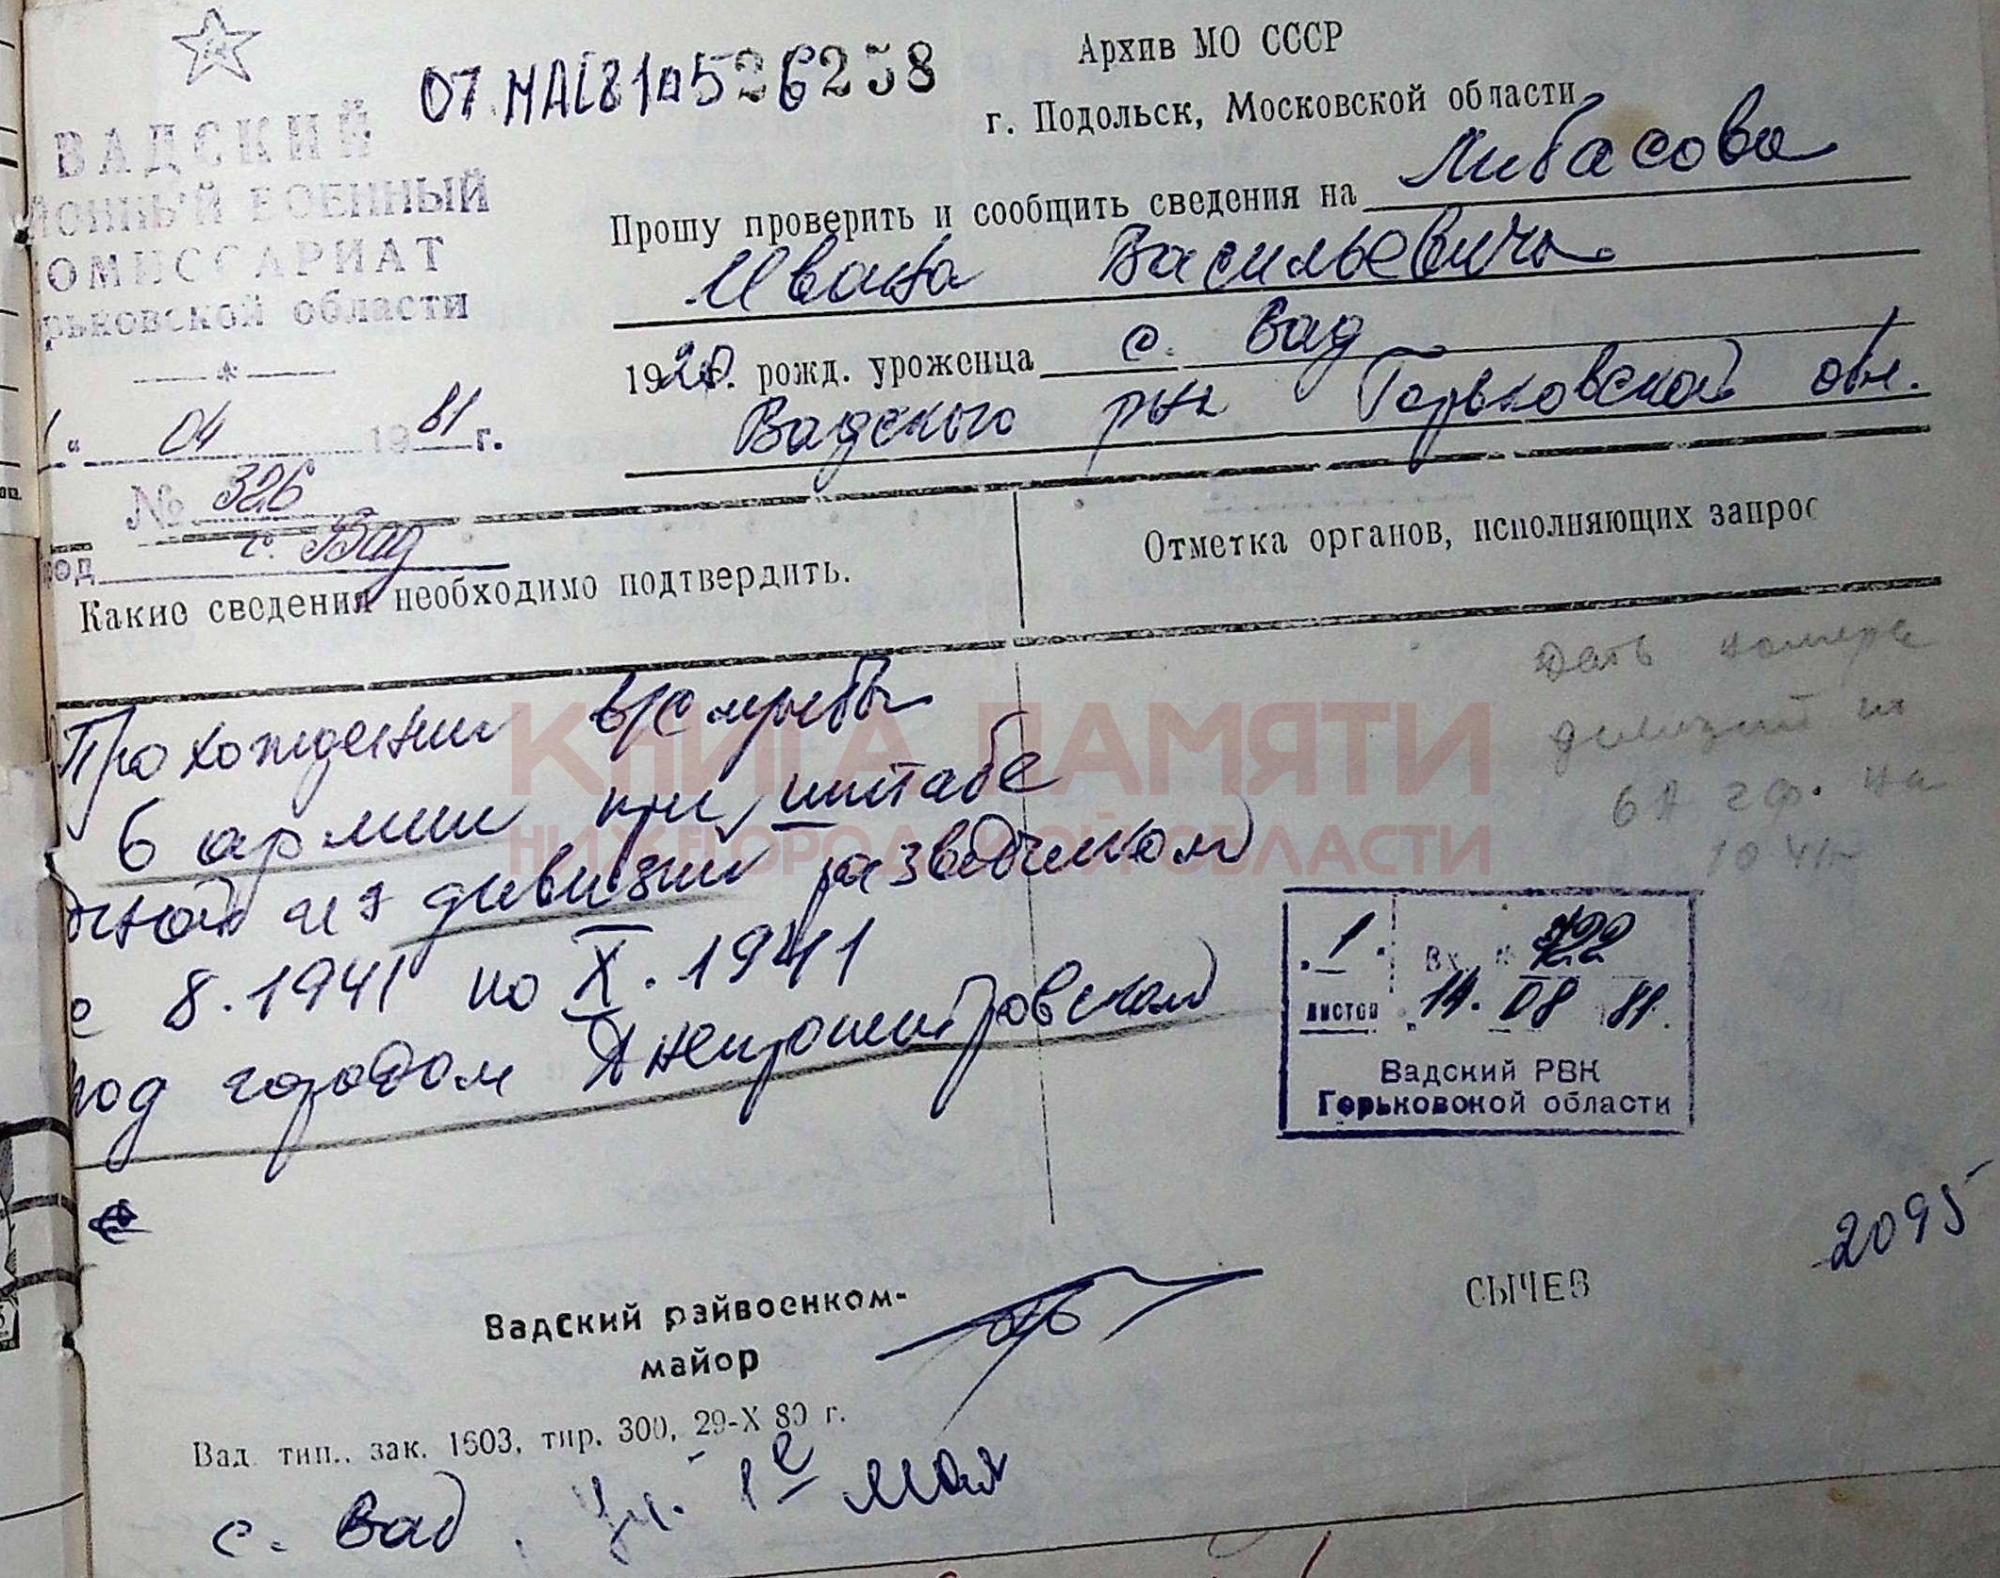 ВАДСКИЙ
ЙОННЫЙ ВОЕННЫЙ
КОМИССАРИАТ
рьковской области
04 1981 г.
№ 326
род с. Вад
07 МАЙ 81 0526258
Архив МО СССР
г. Подольск, Московской области
Прошу проверить и сообщить сведения на Либасова
Ивана Васильевича
1920 г. рожд. уроженца с. Вад
Вадского р-на Горьковской обл.
Какие сведения необходимо подтвердить.
Отметка органов, исполняющих запрос
Прохождении в/службы
6 армии при штабе
дной из дивизии разведчиком
с 8.1941 по X.1941
под городом Днепропетровском
Дать номера
дивизий
6А на
10 41г
КНИГА ПАМЯТИ
НИЖЕГОРОДСКОЙ ОБЛАСТИ
1
листов
Вх. №
14. 08 81.
Вадский РВК
Горьковской области
2095
Вадский райвоенком-
майор
СЫЧЕВ
Вад. тип., зак. 1603, тир. 300, 29-X 80 г.
с. Вад, ул. 1е мая